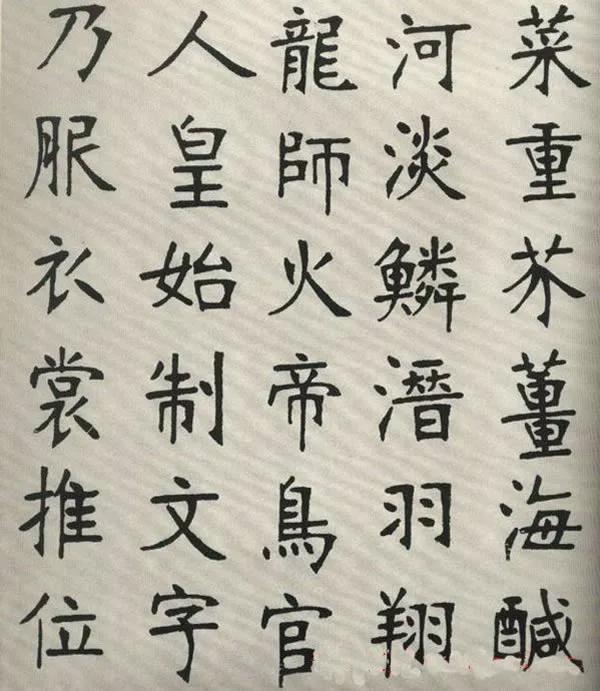 菜重芥薑海醎
河淡鱗潛羽翔
龍師火帝鳥官
人皇始制文字
乃服衣裳推位